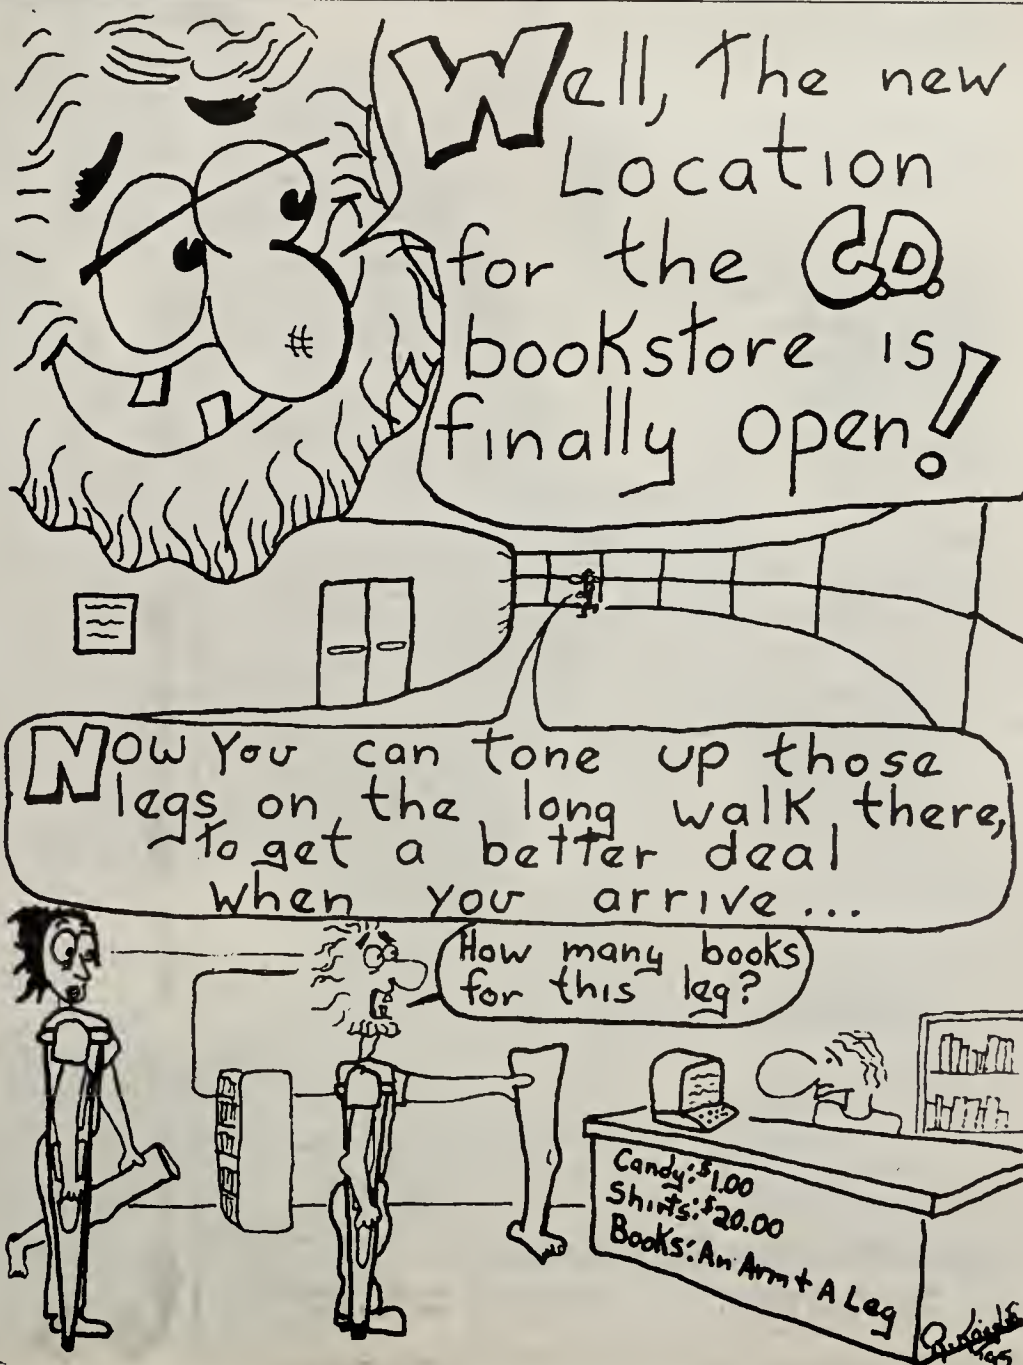 Well, The new
Location
for the C.D.
bookstore is
finally open!
Now you can tone up those
legs on the long walk there,
to get a better deal
when you arrive...
How many books
for this leg?
Candy: $1.00
Shirts: $20.00
Books: An Arm + A Leg